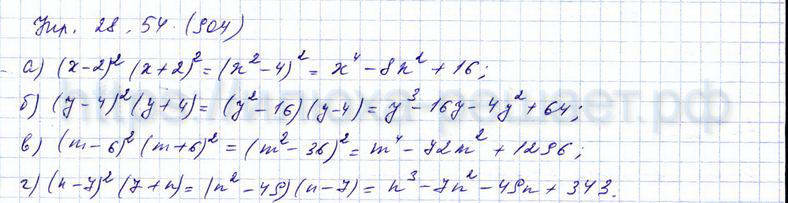 Упр. 28.54 (904)
а) (x-2)² (x+2)² = (x²-4)² = x⁴ - 8x² + 16;
б) (y-4)² (y+4) = (y²-16) (y-4) = y³ - 16y - 4y² + 64;
в) (m-6)² (m+6)² = (m² - 36)² = m⁴ - 72m² + 1296;
г) (n-7)² (7+n) = (n² - 49) (n-7) = n³ - 7n² - 49n + 343.